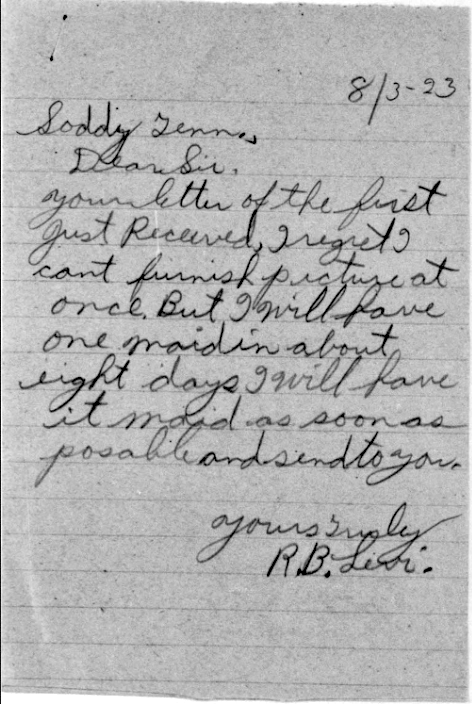 8/3-23
Soddy Tenn.,
Dear Sir.
your letter of the first
Just Received, I regret I
cant furnish picture at
once. But I will have
one maid in about
eight days I will have
it maid as soon as
posable and send to you.
yours Truly
R.B. Levi.